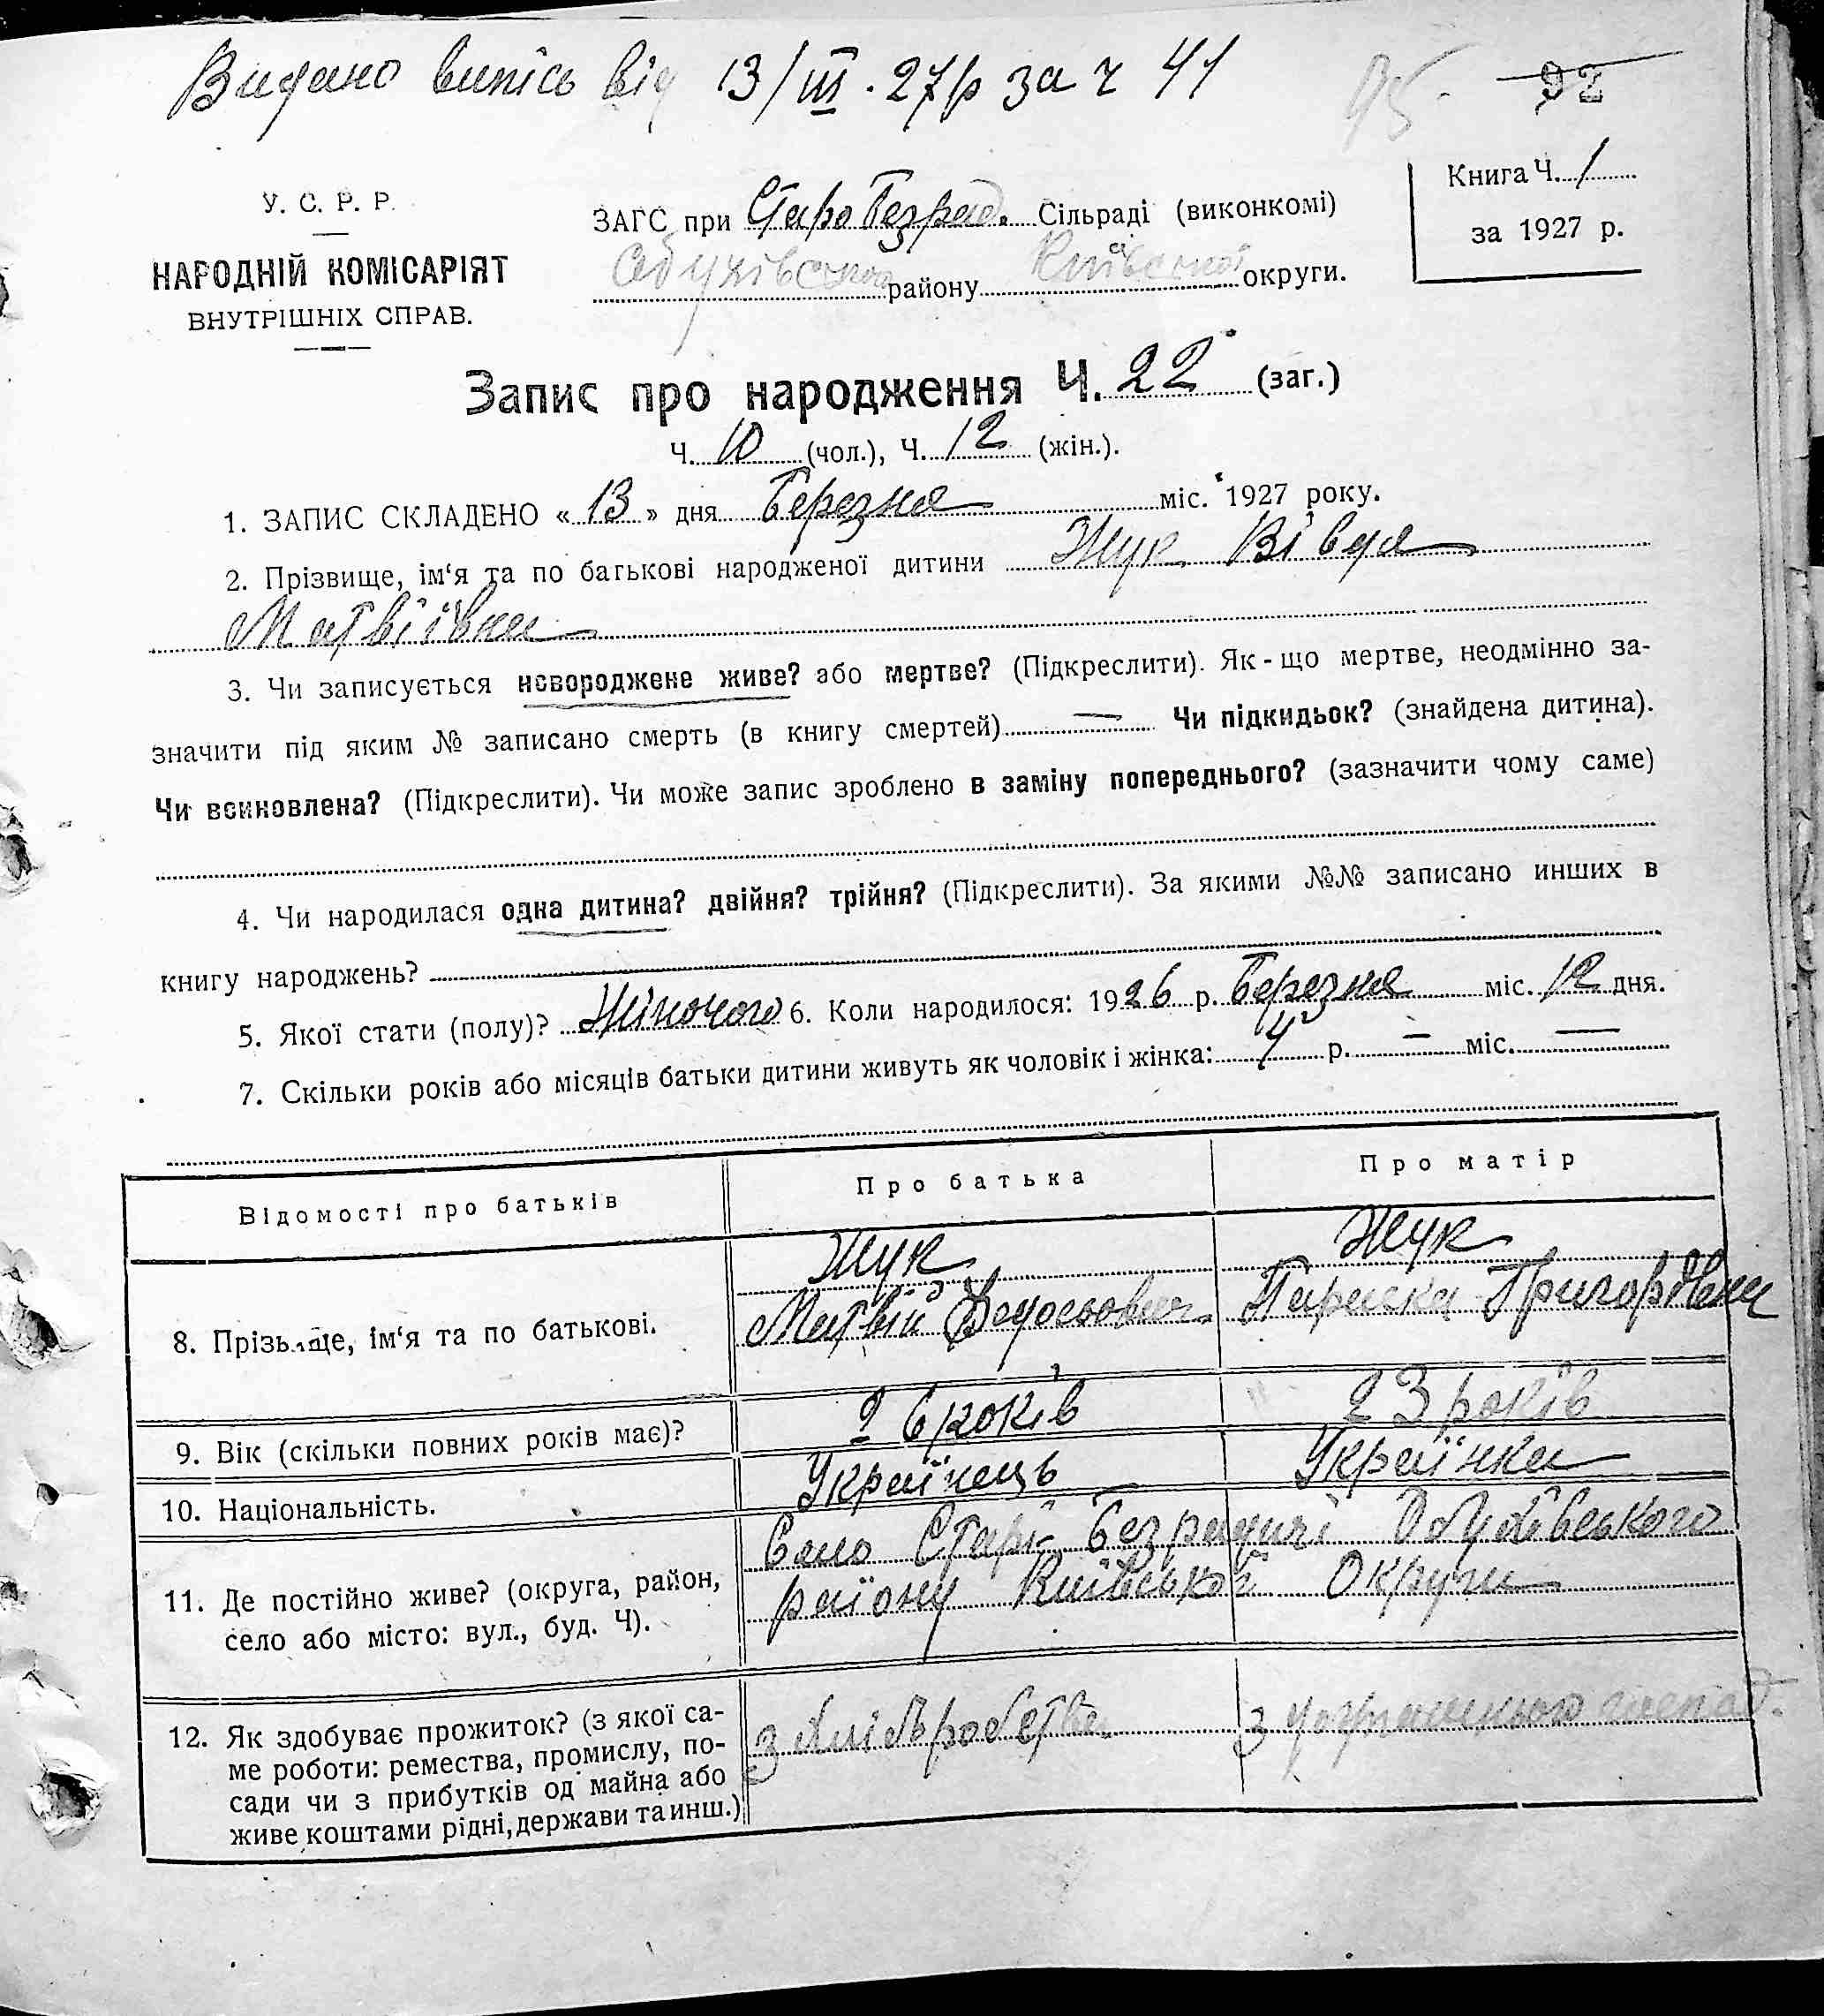 Видано випісь від 13/III. 27р за ч 41
95. 92
Книга Ч. 1
за 1927 р.
У. С. Р. Р.
НАРОДНІЙ КОМІСАРІЯТ
ВНУТРІШНІХ СПРАВ.
ЗАГС при Старо Безрад. Сільраді (виконкомі)
Обухівського району Київської округи.
Запис про народження Ч. 22 (заг.)
Ч. 10 (чол.), Ч. 12 (жін.).
1. ЗАПИС СКЛАДЕНО « 13 » дня Березня міс. 1927 року.
2. Прізвище, ім‘я та по батькові народженої дитини Жук Вівдя
Матвіівна
3. Чи записується новороджене живе? або мертве? (Підкреслити). Як-що мертве, неодмінно за-
значити під яким № записано смерть (в книгу смертей) — Чи підкидьок? (знайдена дитина).
Чи всиновлена? (Підкреслити). Чи може запис зроблено в заміну попереднього? (зазначити чому саме)
4. Чи народилася одна дитина? двійня? трійня? (Підкреслити). За якими №№ записано инших в
книгу народжень?
5. Якої стати (полу)? Жіночого 6. Коли народилося: 1926 р. Березня міс. 12 дня.
7. Скільки років або місяців батьки дитини живуть як чоловік і жінка: 4 р. — міс. —
Відомості про батьків Про батька Про матір
8. Прізвище, ім‘я та по батькові.
Жук
Матвій Федосьович
Жук
Параска Григорівна
9. Вік (скільки повних років має)? 26 років 23 років
10. Національність. Украінець Украінка
11. Де постійно живе? (округа, район,
село або місто: вул., буд. Ч).
Село Старі-Безрадичі Обухівського
району Київської Округи
12. Як здобуває прожиток? (з якої са-
ме роботи: ремества, промислу, по-
сади чи з прибутків од майна або
живе коштами рідні, держави та инш.)
з хліборобства
з